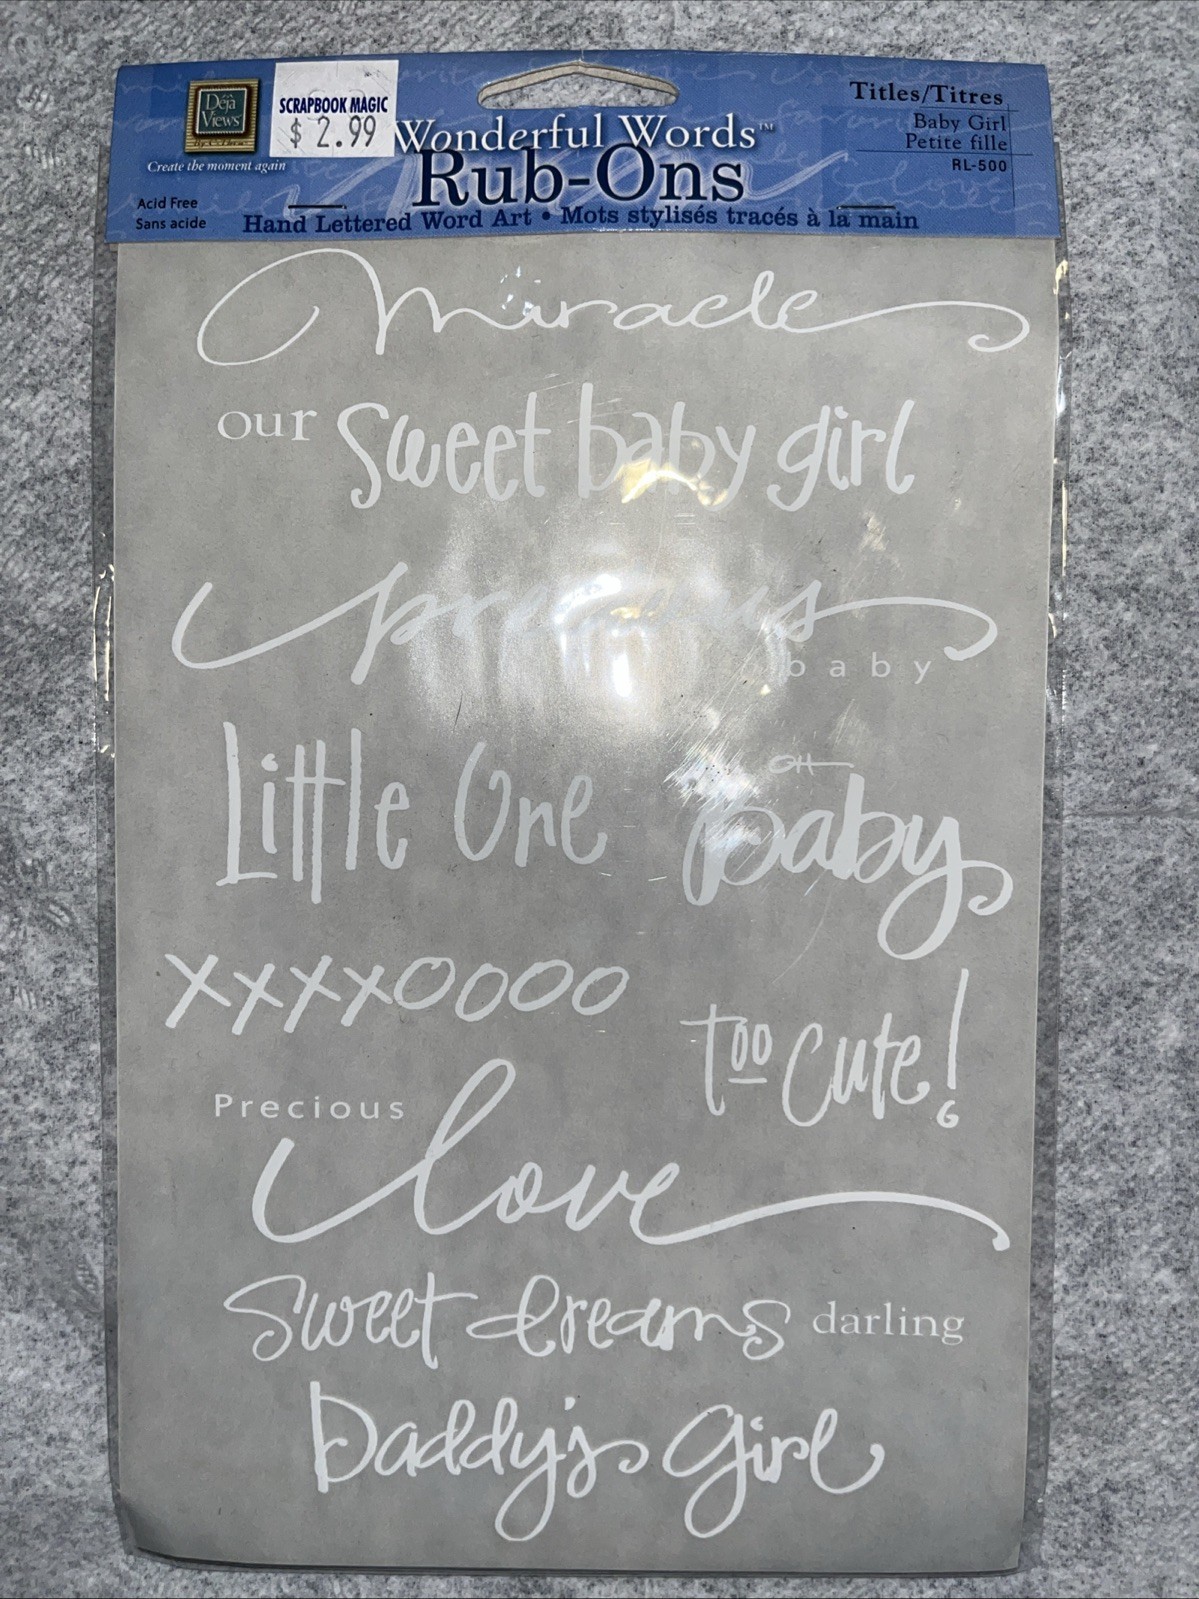 Déjà
Views
Create the moment again
SCRAPBOOK MAGIC
$ 2.99
Wonderful Words™
Rub-Ons
Titles/Titres
Baby Girl
Petite fille
RL-500
Acid Free
Sans acide
Hand Lettered Word Art • Mots stylisés tracés à la main
Miracle
our sweet baby girl
precious
baby
Little One
OH
baby
xxxxoooo
too cute!
Precious
love
Sweet dreams darling
Daddy's girl